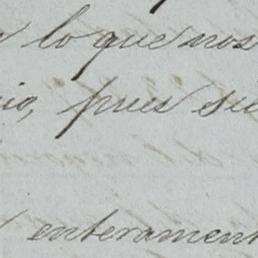 lo que nos
pues
enterament